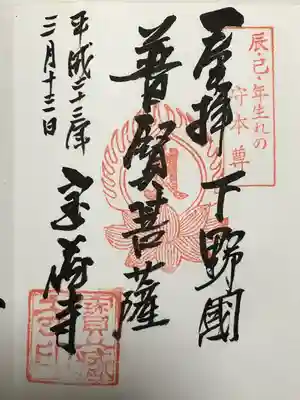 辰・巳・年生れの
守本尊
奉拝 下野國
普賢菩薩
平成二十三年
三月十三日
宝蔵寺